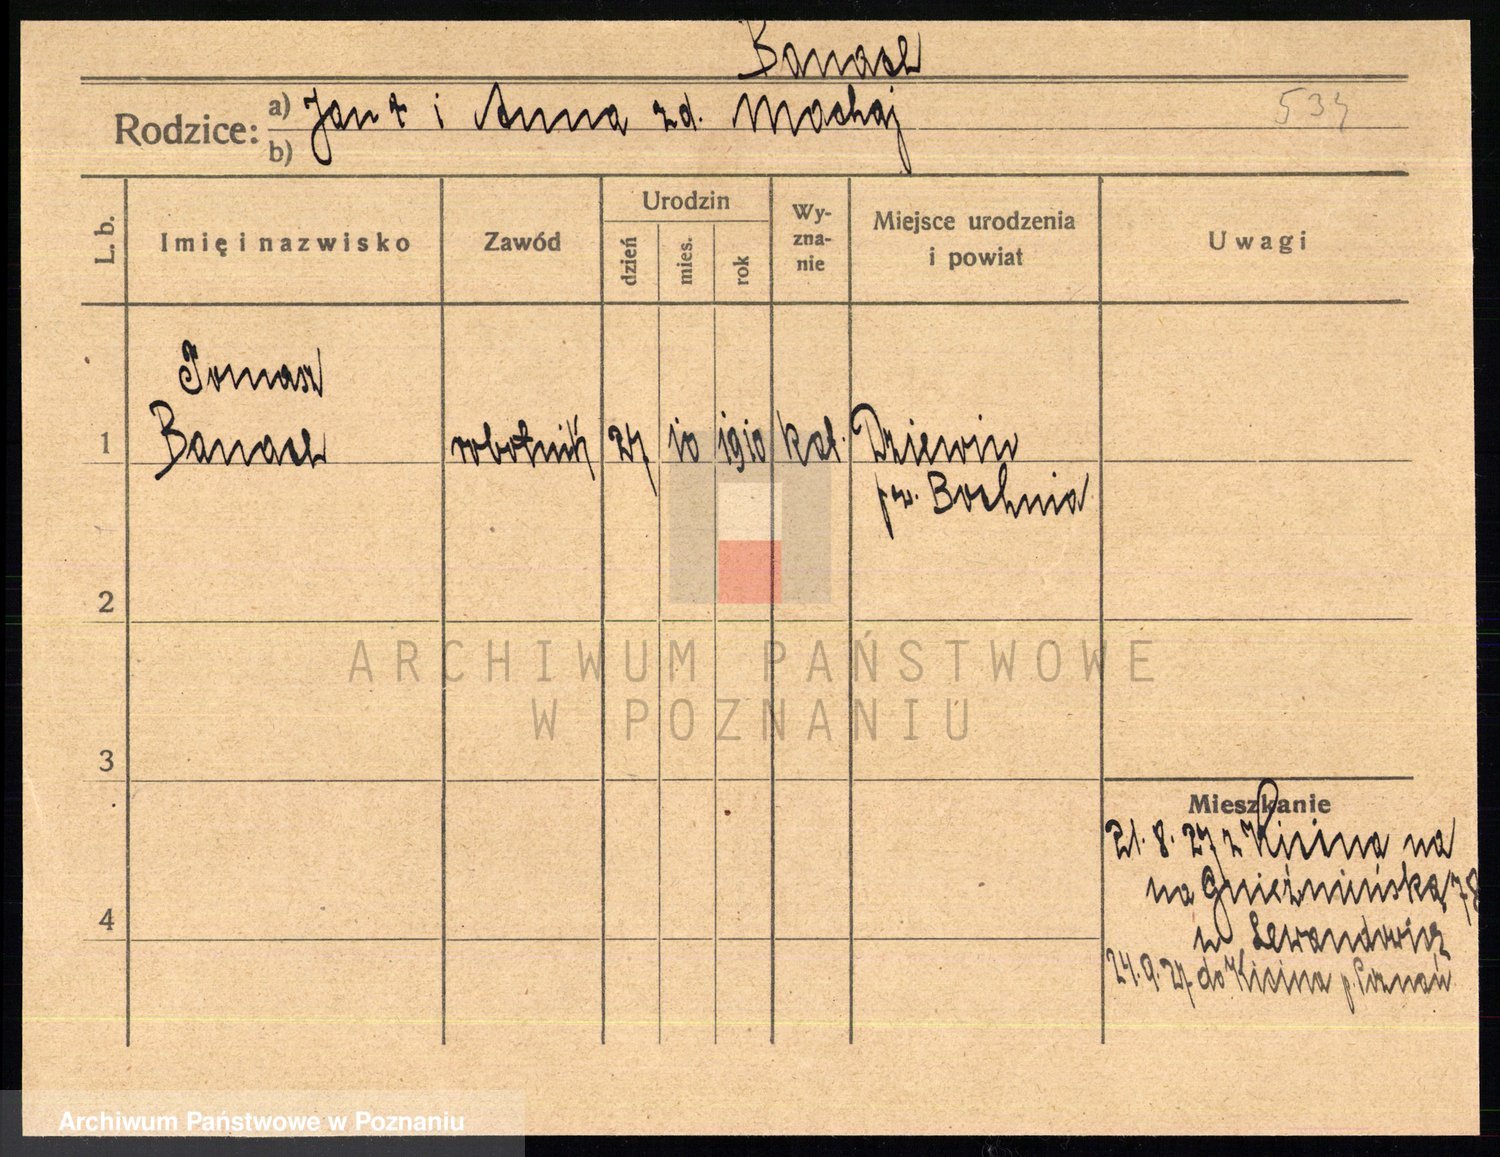 Banach
Rodzice: a) Jan † i Anna zd. Machaj
b)
534
L. b. Imię i nazwisko Zawód Urodzin dzień mies. rok Wy-zna-nie Miejsce urodzenia i powiat Uwagi
Tomasz
1 Banach robotnik 27 10 1910 kat. Dziewin
pw. Bochnia
2
ARCHIWUM PAŃSTWOWE
W POZNANIU
3
Mieszkanie
21. 8. 27 z Kicina na
na Gnieźnieńską 78
4
24. 9. 27 do Kicina p. Poznań
Archiwum Państwowe w Poznaniu